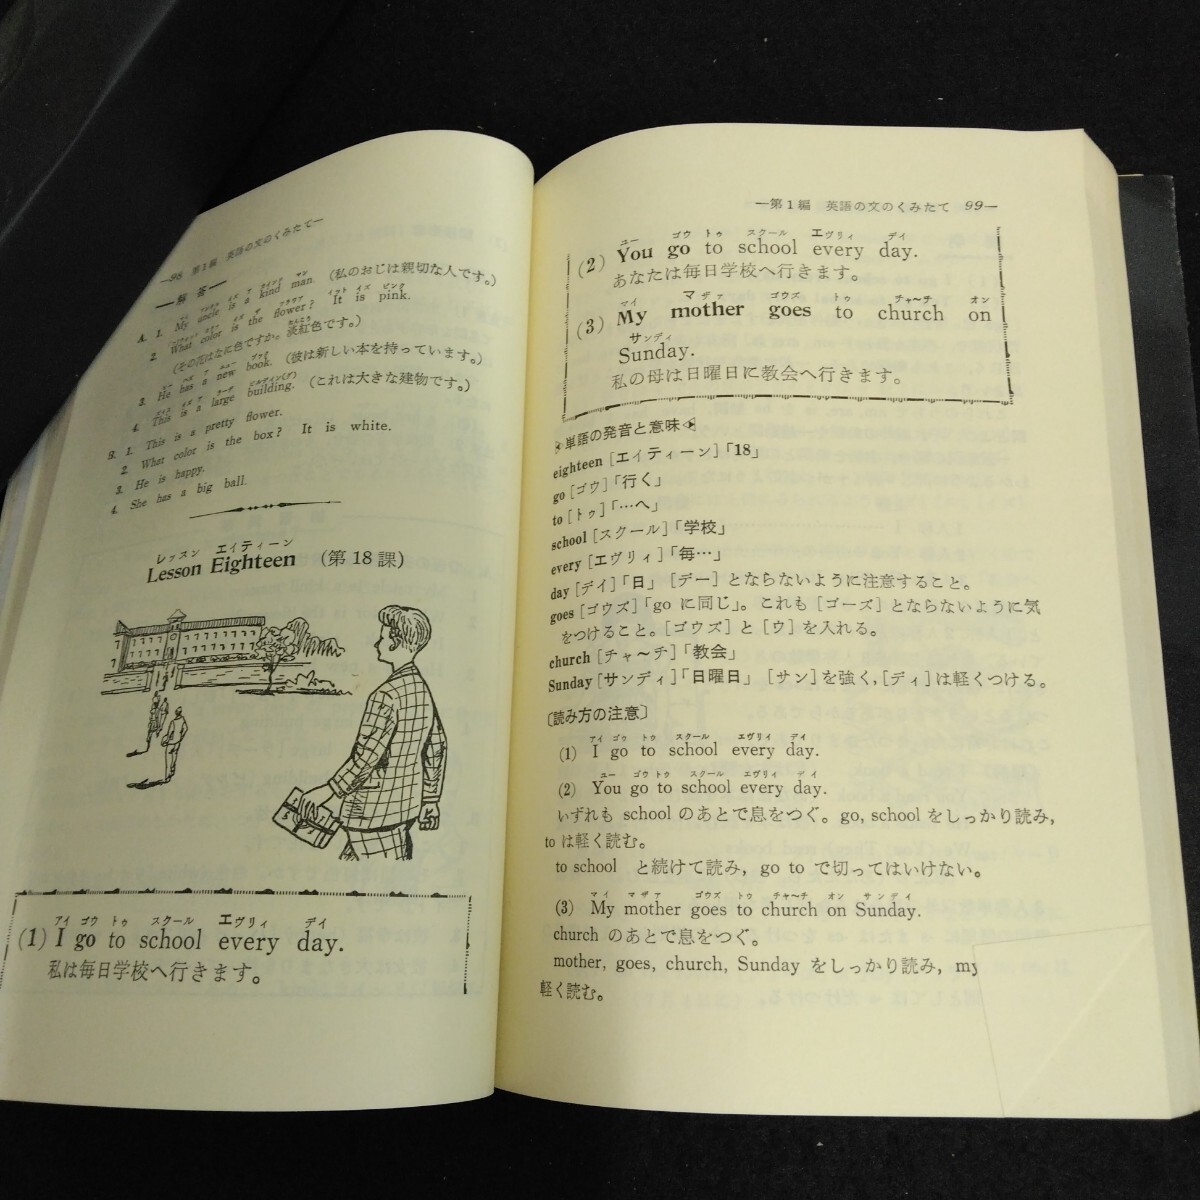 —98 第1編 英語の文のくみたて—
—解 答—
A. 1. My uncle is a kind man. (私のおじは親切な人です。)
2. What color is the flower? It is pink.
(その花はなに色ですか。淡紅色です。)
3. He has a new book. (彼は新しい本を持っています。)
4. This is a large building. (これは大きな建物です。)
B. 1. This is a pretty flower.
2. What color is the box? It is white.
3. He is happy.
4. She has a big ball.
レッスン エイティーン
Lesson Eighteen (第18課)
アイ ゴウ トゥ スクール エヴリィ デイ
(1) I go to school every day.
私は毎日学校へ行きます。
—第1編 英語の文のくみたて 99—
ユー ゴウ トゥ スクール エヴリィ デイ
(2) You go to school every day.
あなたは毎日学校へ行きます。
マイ マザァ ゴウズ トゥ チャ〜チ オン
(3) My mother goes to church on
サンディ
Sunday.
私の母は日曜日に教会へ行きます。
単語の発音と意味
eighteen [エイティーン]「18」
go [ゴウ]「行く」
to [トゥ]「…へ」
school [スクール]「学校」
every [エヴリィ]「毎…」
day [デイ]「日」 [デー] とならないように注意すること。
goes [ゴウズ]「go に同じ」。これも [ゴーズ] とならないように気
をつけること。[ゴウズ] と [ウ] を入れる。
church [チャ〜チ]「教会」
Sunday [サンディ]「日曜日」 [サン] を強く, [ディ] は軽くつける。
〔読み方の注意〕
アイ ゴウ トゥ スクール エヴリィ デイ
(1) I go to school every day.
ユー ゴウ トゥ スクール エヴリィ デイ
(2) You go to school every day.
いずれも school のあとで息をつぐ。go, school をしっかり読み,
to は軽く読む。
to school と続けて読み, go to で切ってはいけない。
マイ マザァ ゴウズ トゥ チャ〜チ オン サンディ
(3) My mother goes to church on Sunday.
church のあとで息をつぐ。
mother, goes, church, Sunday をしっかり読み, my
軽く読む。